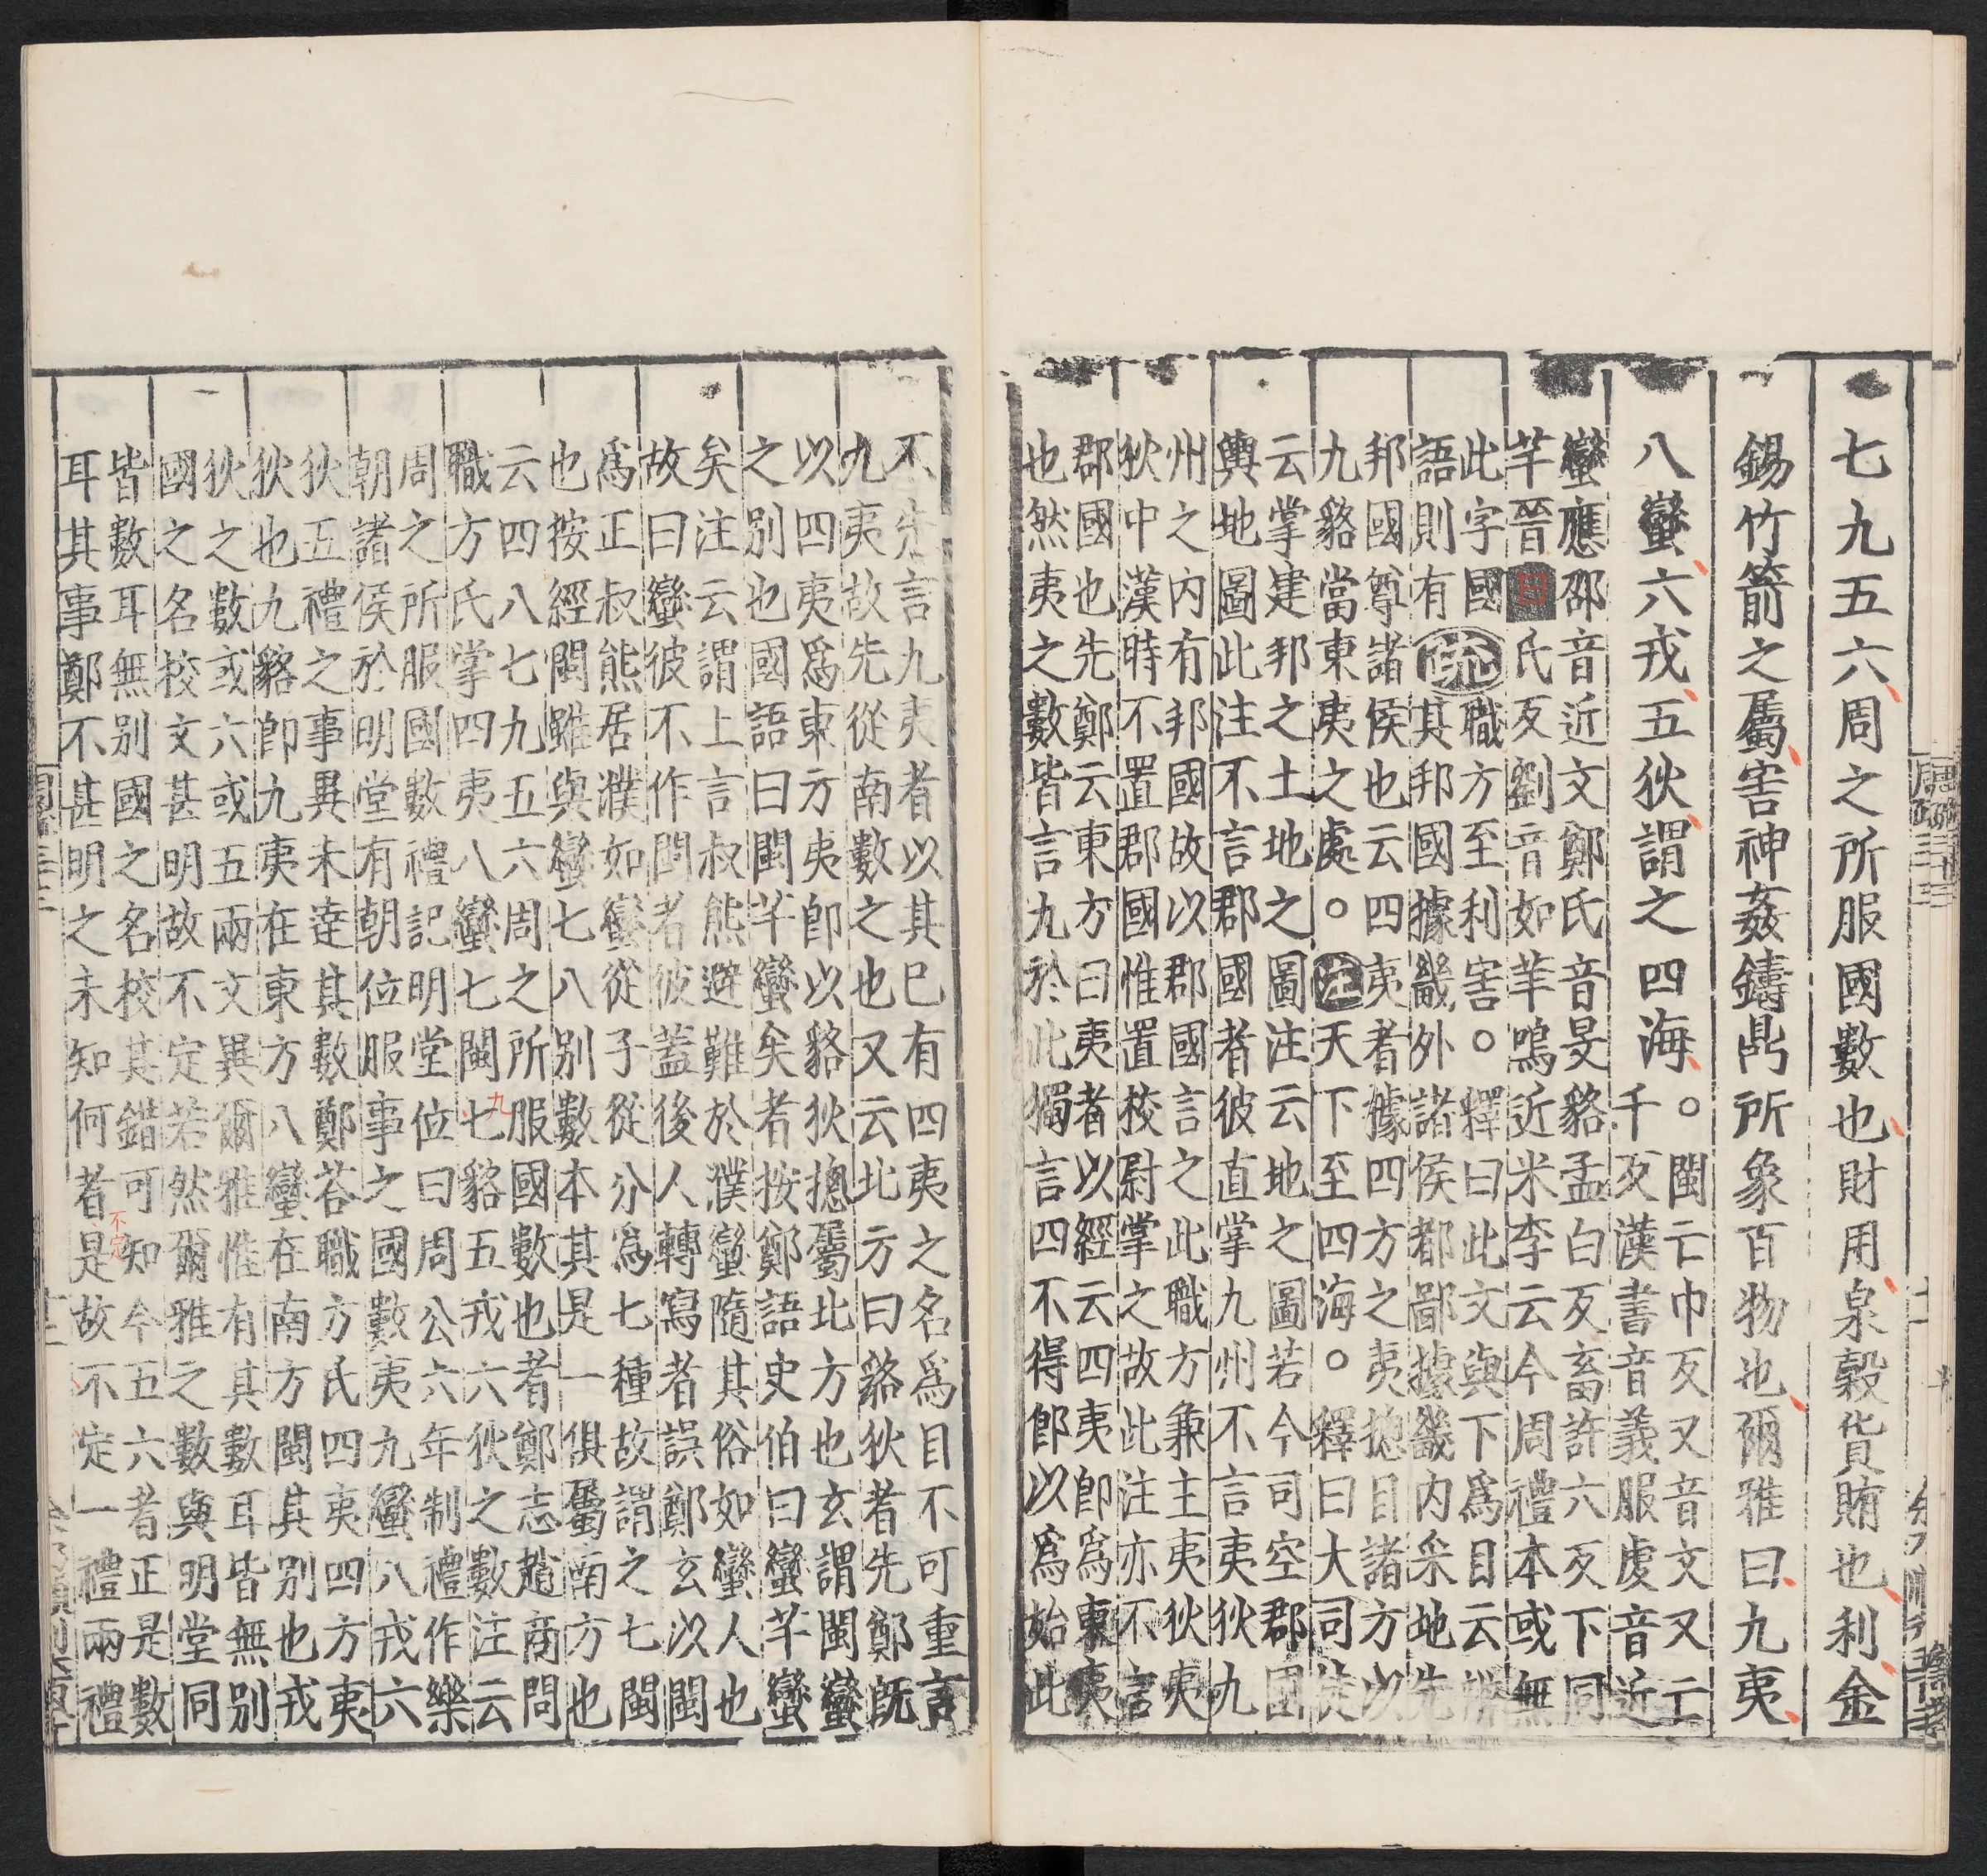 七九五六周之所服國數也財用泉穀貨賄也利金
錫竹箭之屬害神姦鑄鼎所象百物也爾雅曰九夷
八蠻六戎五狄謂之四海
。閩亡巾反又音文又亡
千反漢書音義服虔音近
蠻應邵音近文鄭氏音旻貉孟白反畜許六反下同
芊晉曰氏反劉音如芊嗚近米李云今周禮本或無
此字國
語則有
疏
職方至利害。釋曰此文與下爲目云辨
其邦國據畿外諸侯都鄙據畿內采地先
邦國尊諸侯也云四夷者據四方之夷揔目諸方以
九貉當東夷之處。注天下至四海。釋曰大司徒
云掌建邦之土地之圖注云地之圖若今司空郡國
輿地圖此注不言郡國者彼直掌九州不言夷狄九
州之內有邦國故以郡國言之此職方兼主夷狄夷
狄中漢時不置郡國惟置校尉掌之故此注亦不言
郡國也先鄭云東方曰夷者以經云四夷即爲東夷
也然夷之數皆言九於此獨言四不得即以爲始此
不先言九夷者以其已有四夷之名爲目不可重言
九夷故先從南數之也又云北方曰貉狄者先鄭既
以四夷爲東方夷即以貉狄揔屬北方也玄謂閩蠻
之別也國語曰閩芊蠻矣者按鄭語史伯曰蠻芊蠻
矣注云謂上言叔熊避難於濮蠻隨其俗如蠻人也
故曰蠻彼不作閩者彼蓋後人轉寫者誤鄭玄以閩
爲正叔熊居濮如蠻從子從分爲七種故謂之七閩
也按經閩雖與蠻七八別數本其是一俱屬南方也
云四八七九五六周之所服國數也者鄭志趙商問
職方氏掌四夷八蠻七閩七貉五戎六狄之數注云
九
周之所服國數禮記明堂位曰周公六年制禮作樂
朝諸侯於明堂有朝位服事之國數夷九蠻八戎六
狄五禮之事異未達其數鄭荅職方氏四夷四方夷
狄也九貉即九夷在東方八蠻在南方閩其別也戎
狄之數或六或五兩文異爾雅惟有其數耳皆無別
國之名校文甚明故不定若然爾雅之數與明堂同
皆數耳無別國之名校其錯可知今五六者正是數
不定
耳其事鄭不甚明之未知何者是故不定一禮兩禮